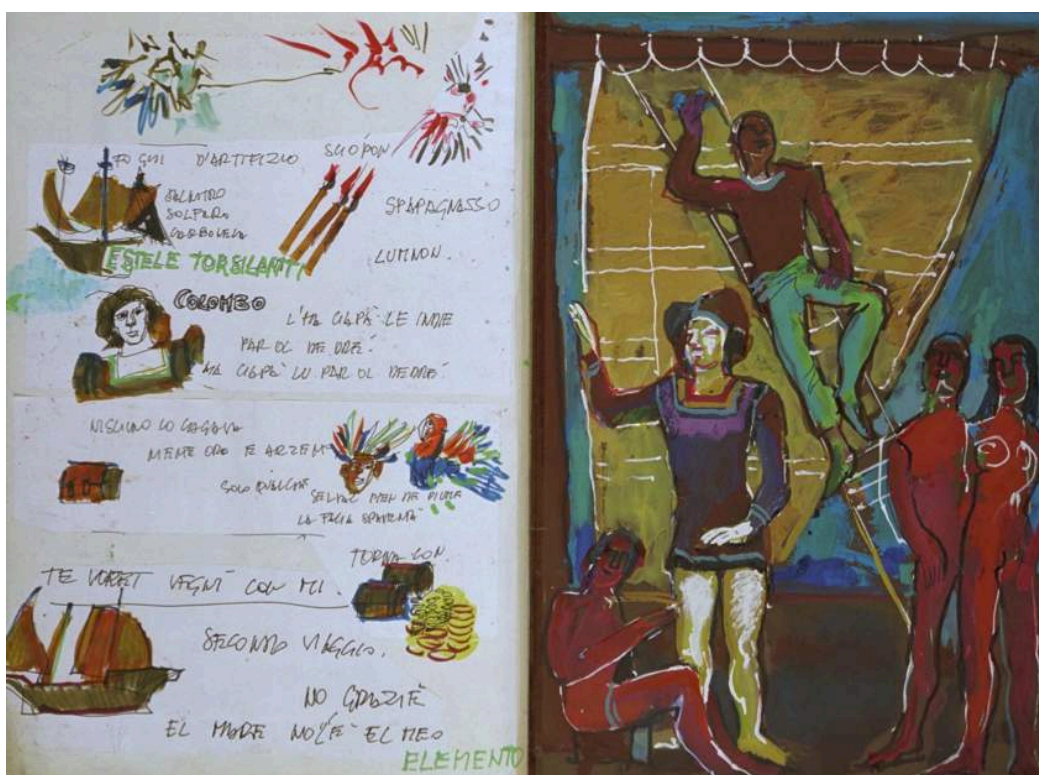 FO GHI D'ARTIFIZIO SCIÓPON
SALNITRO
SOLFARO
SPAPAGNASSO
LUMNON.
ESTELE TORSILANTI
COLOMBO
L'HA CIAPÀ LE INDIE
PAR OL DE DRÉ.
HA CIAPÀ LU PAR OL DEDRÉ.
NISCIUNO LO CAGAVA
ORO E ARZEN
SOLO QUALCHE
SELVAZ PIEN DE PIUMA
LA FACIA SPAVENTÀ
TORNA CON.
TE VORET VEGNÌ CON MI.
SECONDO VIAGGIO.
NO GRAZIE
EL MARE NO L'È EL MEO
ELEMENTO